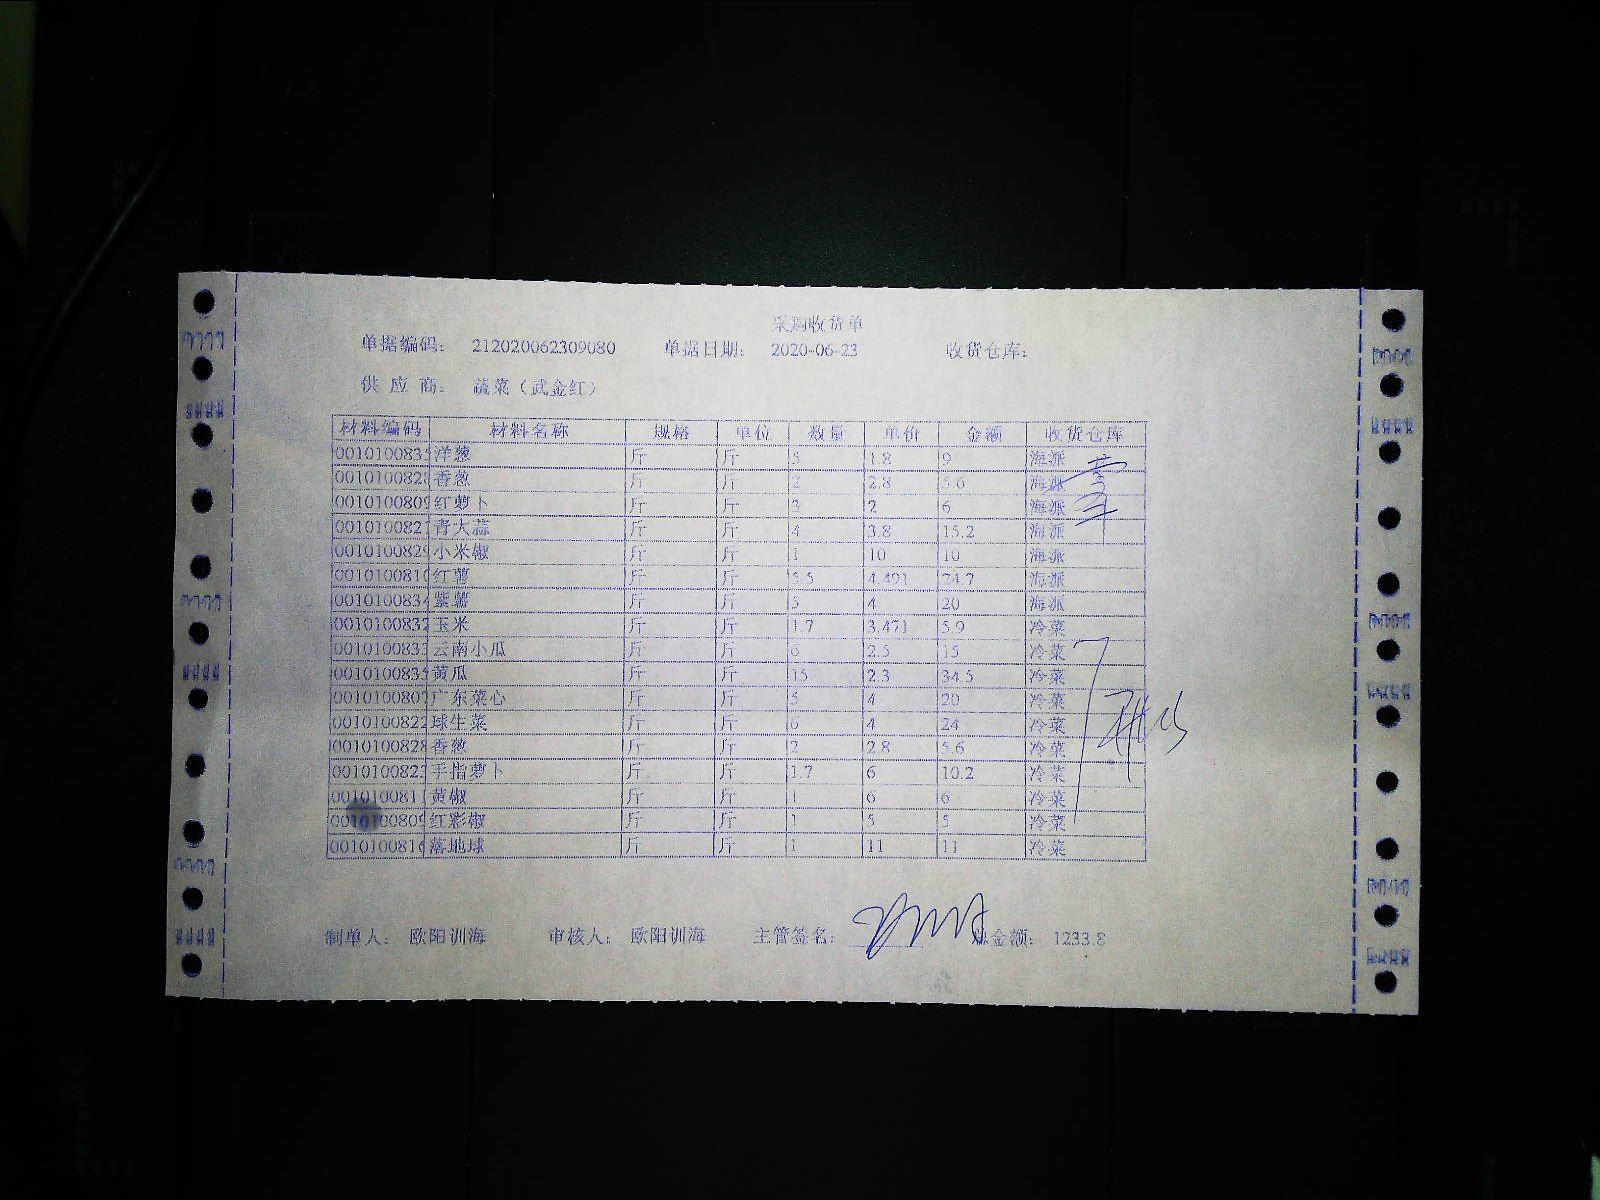 采购收货单
单据编码： 212020062309080 单据日期： 2020-06-23 收货仓库：
供 应 商： 蔬菜（武金红）
材料编码 材料名称 规格 单位 数量 单价 金额 收货仓库
0010100835 洋葱 斤 斤 5 1.8 9 海派
001010082 香葱 斤 斤 2 2.8 5.6 海派
0010100809 红萝卜 斤 斤 3 2 6 海派
001010082 青大蒜 斤 斤 4 3.8 15.2 海派
0010100829 小米椒 斤 斤 1 10 10 海派
001010081 红薯 斤 斤 5.5 4.491 24.7 海派
0010100834 紫薯 斤 斤 5 4 20 海派
0010100832 玉米 斤 斤 1.7 3.471 5.9 冷菜
0010100833 云南小瓜 斤 斤 6 2.5 15 冷菜
0010100835 黄瓜 斤 斤 15 2.3 34.5 冷菜
0010100807 广东菜心 斤 斤 5 4 20 冷菜
0010100822 球生菜 斤 斤 6 4 24 冷菜
0010100828 香葱 斤 斤 2 2.8 5.6 冷菜
0010100823 手指萝卜 斤 斤 1.7 6 10.2 冷菜
001010081 黄椒 斤 斤 1 6 6 冷菜
0010100809 红彩椒 斤 斤 1 5 5 冷菜
0010100816 落地球 斤 斤 1 11 11 冷菜
制单人： 欧阳训海 审核人： 欧阳训海 主管签名： 总金额： 1233.8